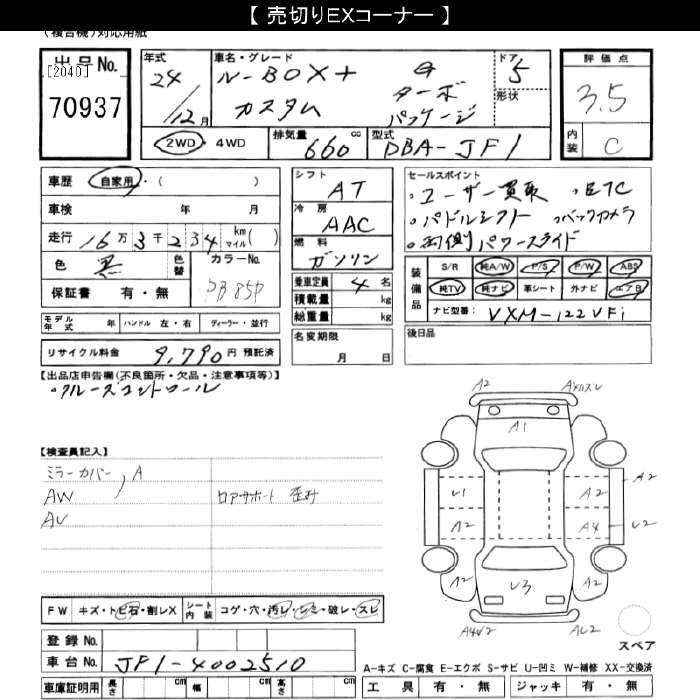 【 売切りEXコーナー 】
(複合機)対応用紙
出品No. [2040] 70937
年式 24/12月
車名・グレード N-BOX+ G
カスタム ターボ
パッケージ
ドア 5
形状
評価点 3.5
内装 C
2WD・4WD 排気量 660 cc 型式 DBA-JF1
車歴 自家用・( )
車検 年 月
走行 16万3千234 km マイル( )
色 黒 色替 カラーNo. PB85P
保証書 有・無
モデル年式 年 ハンドル 左・右 ディーラー・並行
リサイクル料金 9,790円 預託済
シフト AT
冷房 AAC
燃料 ガソリン
乗車定員 4 名
積載量 kg
総重量 kg
名変期限
月 日
セールスポイント
・ユーザー買取 ・ETC
・パドルシフト ・バックカメラ
・両側パワースライド
装備品 S/R 純A/W P/S P/W ABS
純TV 純ナビ 革シート 外ナビ エアB
ナビ型番: VXM-122VFi
後日品
【出品店申告欄(不良箇所・欠品・注意事項等)】
・クルーズコントロール
【検査員記入】
ミラーカバー, A
AW ロアサポート
AU
A2 AXハズレ
A1
U1 A2 A2
A2 A4 U2
A2 U3 A2
A4U2 A2
FW キズ・トビ石・割レX シート内装 コゲ・穴・汚レ・シミ・破レ・スレ
登録No.
車台No. JF1-4002510
車庫証明用 長さ cm 幅 cm 高さ cm
スペア
A-キズ C-腐食 E-エクボ S-サビ U-凹ミ W-補修 XX-交換済
工具 有・無 ジャッキ 有・無